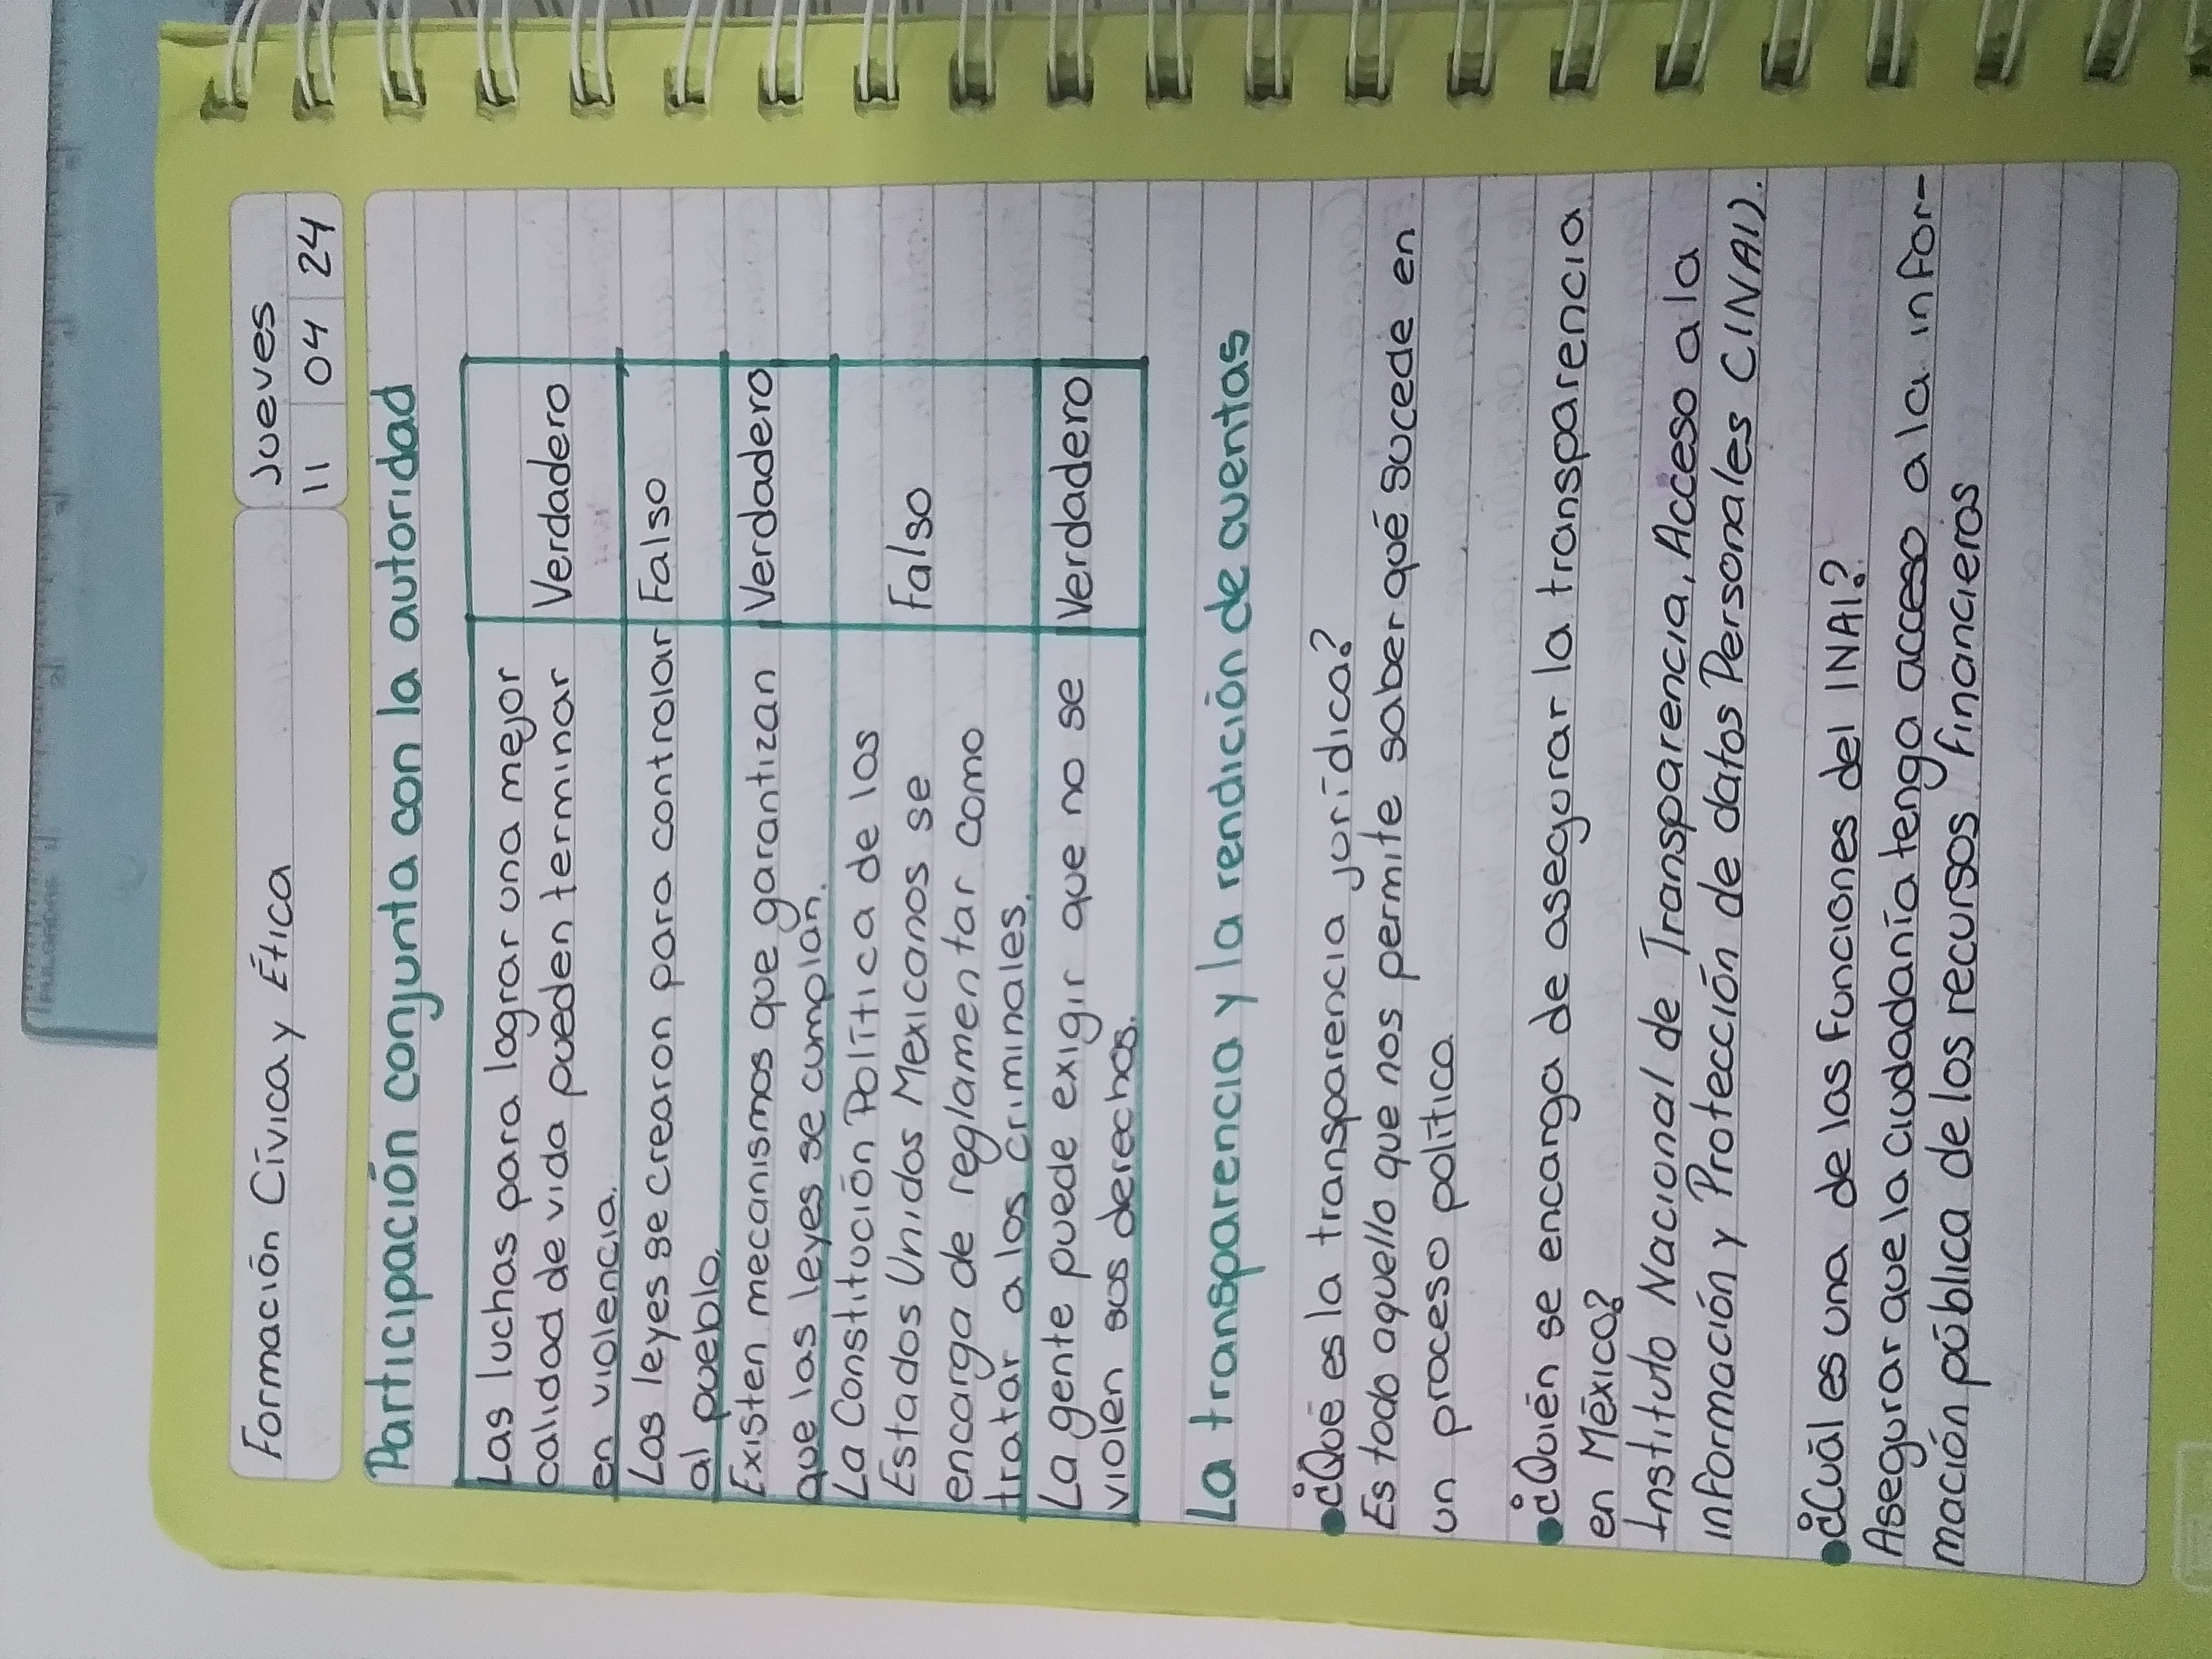 Formación Cívica y Ética
Jueves
11 04 24
Participación conjunta con la autoridad
Las luchas para lograr una mejor
calidad de vida pueden terminar Verdadero
en violencia.
Las leyes se crearon para controlar Falso
al pueblo.
Existen mecanismos que garantizan Verdadero
que las leyes se cumplan.
La Constitución Política de los
Estados Unidos Mexicanos se Falso
encarga de reglamentar como
tratar a los criminales.
La gente puede exigir que no se Verdadero
violen sus derechos.
La transparencia y la rendición de cuentas
● ¿Qué es la transparencia jurídica?
Es todo aquello que nos permite saber qué sucede en
un proceso político.
● ¿Quién se encarga de asegurar la transparencia
en México?
Instituto Nacional de Transparencia, Acceso a la
información y Protección de datos Personales (INAI).
● ¿Cuál es una de las funciones del INAI?
Asegurar que la ciudadanía tenga acceso a la infor-
mación pública de los recursos financieros